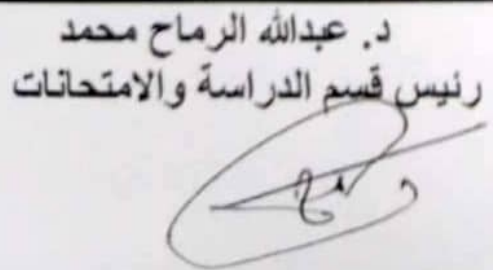 د. عبدالله الرماح محمد
رئيس قسم الدراسة والامتحانات